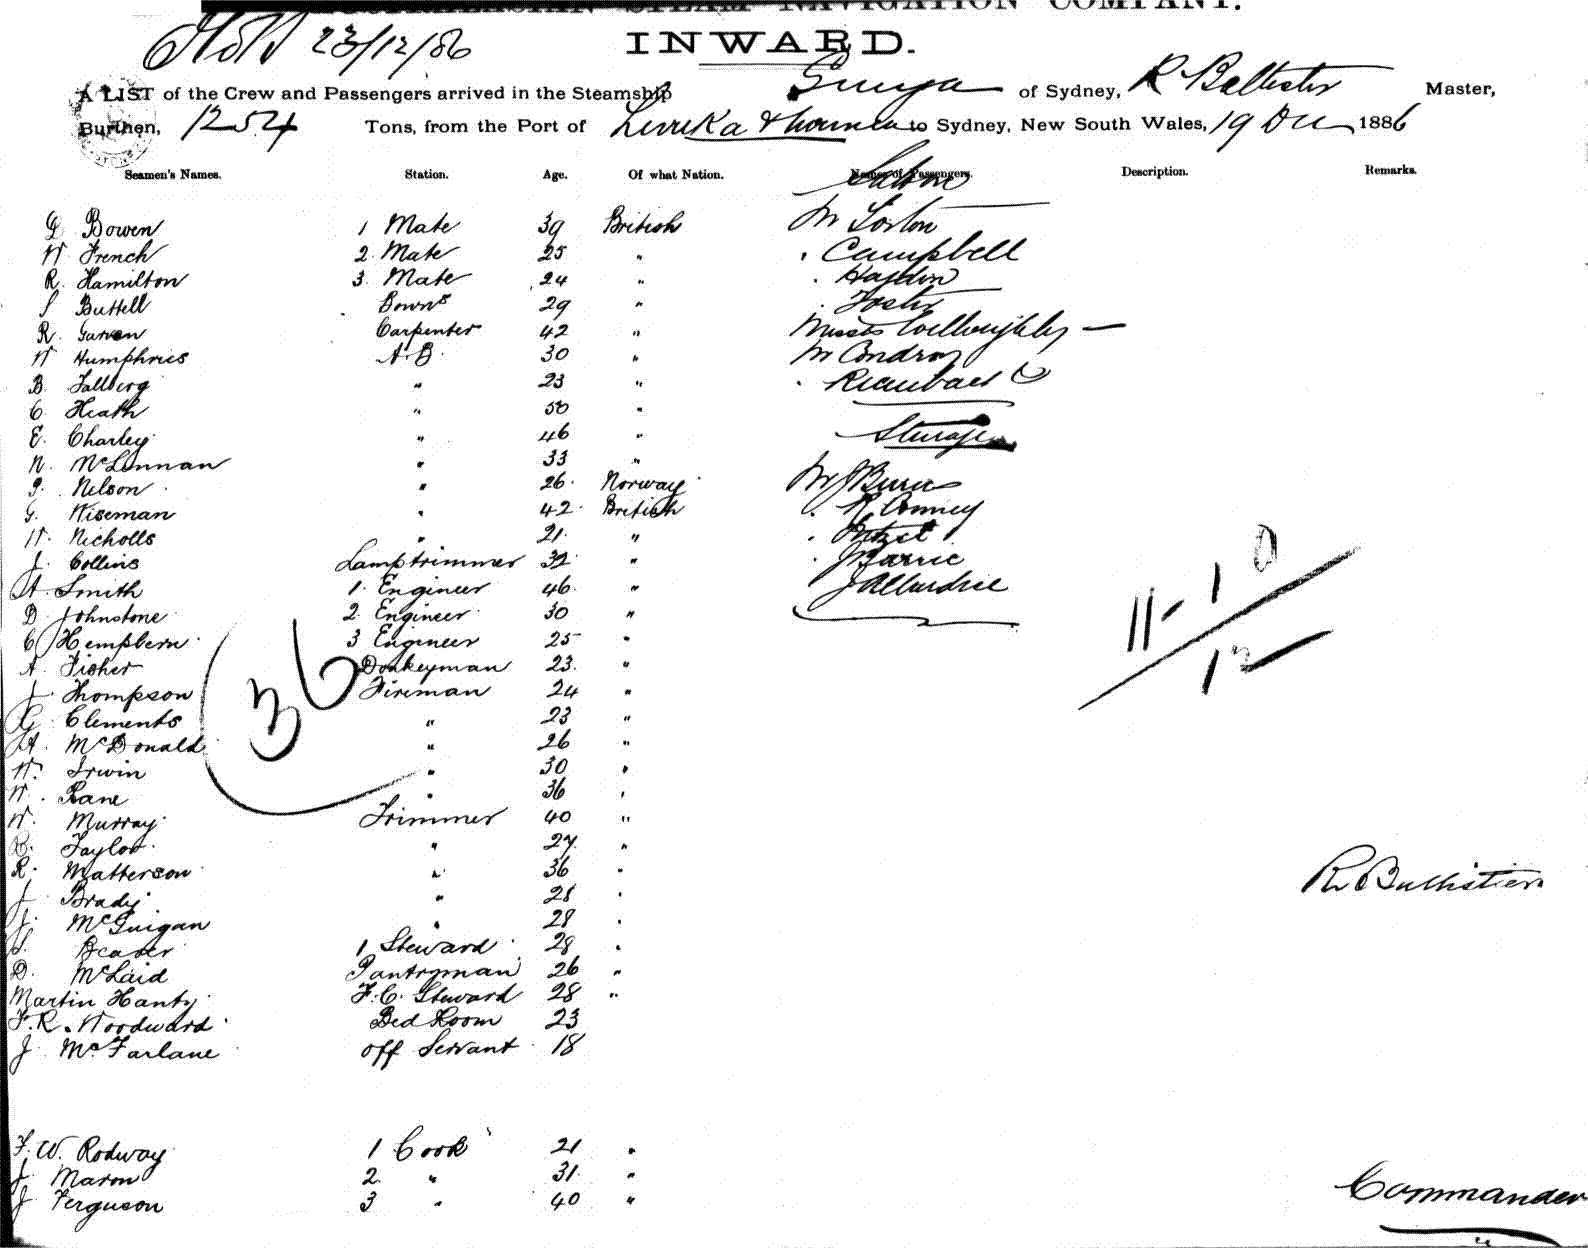 STEAM NAVIGATION COMPANY.
23/12/86
INWARD.
A LIST of the Crew and Passengers arrived in the Steamship Gunga of Sydney, R Ballister Master,
Burthen, 1254 Tons, from the Port of Levuka & Noumea to Sydney, New South Wales, 19 Dec 1886
Seamen's Names. Station. Age. Of what Nation. Names of Passengers. Description. Remarks.
Saloon
G Bowen 1 Mate 39 British Mr
W French 2 Mate 25 " . Campbell
R. Hamilton 3. Mate 24 " . Haydon
S Buttell Bowns 29 " . Foster
R. Garven Carpenter 42 " Misses Willoughby —
W Humphries A.B. 30 " Mr
B. Fallberg " 23 " .
C Heath " 50 "
Steerage
E. Charley " 46 "
N. McLennan " 33 "
P. Nelson " 26 Norway Mr J Burns
G. Wiseman " 42 British . R
W. Nicholls " 21 " .
J. Collins Lamptrimmer 32 " . J Barrie
A Smith 1. Engineer 46 " J Allardice
D Johnstone 2 Engineer 30 "
C Hempbern 3 Engineer 25 "
A. Fisher Donkeyman 23 "
J Thompson Fireman 24 "
G Clements " 23 "
A. McDonald " 26 "
W. Irwin " 30 "
W. Kane " 36 "
W. Murray Trimmer 40 "
Taylor " 27 "
R. Matterson " 36 "
J Brady " 28 "
J. McGuigan " 28 "
S. 1 Steward 28 "
D. McLaid Pantryman 26 "
Martin Hanty F.C. Steward 28 "
F. R. Woodward Bed Room 23
J McFarlane off Servant 18
F. W. Rodway 1 Cook 21 "
J. Maron 2 " 31 "
J Ferguson 3 " 40 "
36
11 - 1
12
R. Ballister
Commander